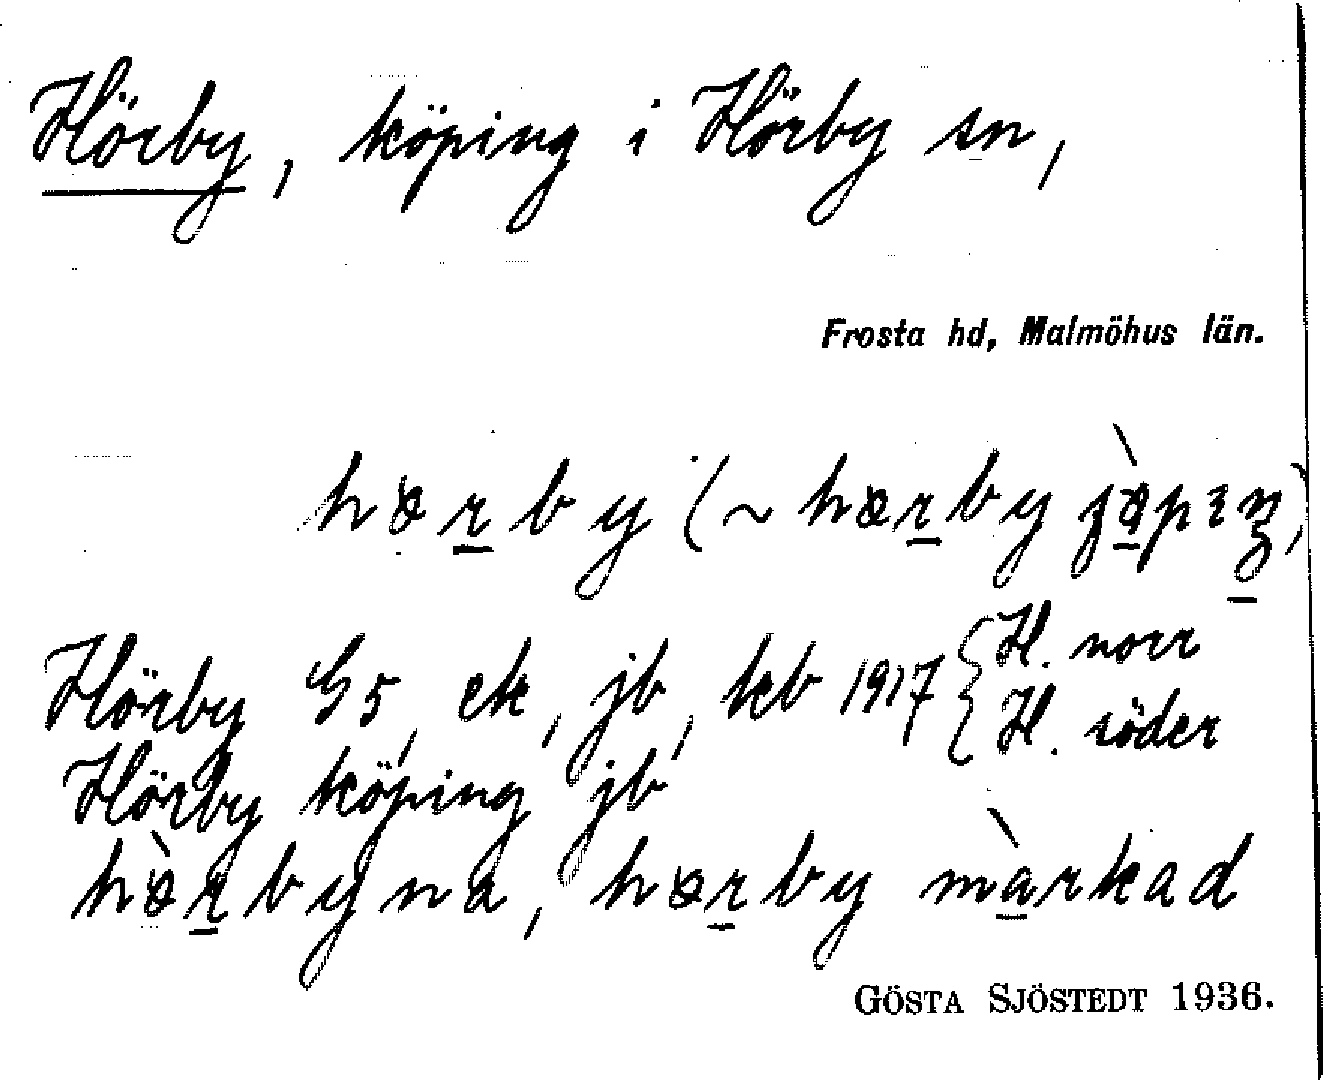 Hörby, köping i Hörby sn,
Frosta hd, Malmöhus län.
hörby (~ hörby
Hörby G5, ek, jb, kb 1917 { H. norr
H. söder
Hörby köping jb
hörbyna, hörby màrkad
GÖSTA SJÖSTEDT 1936.